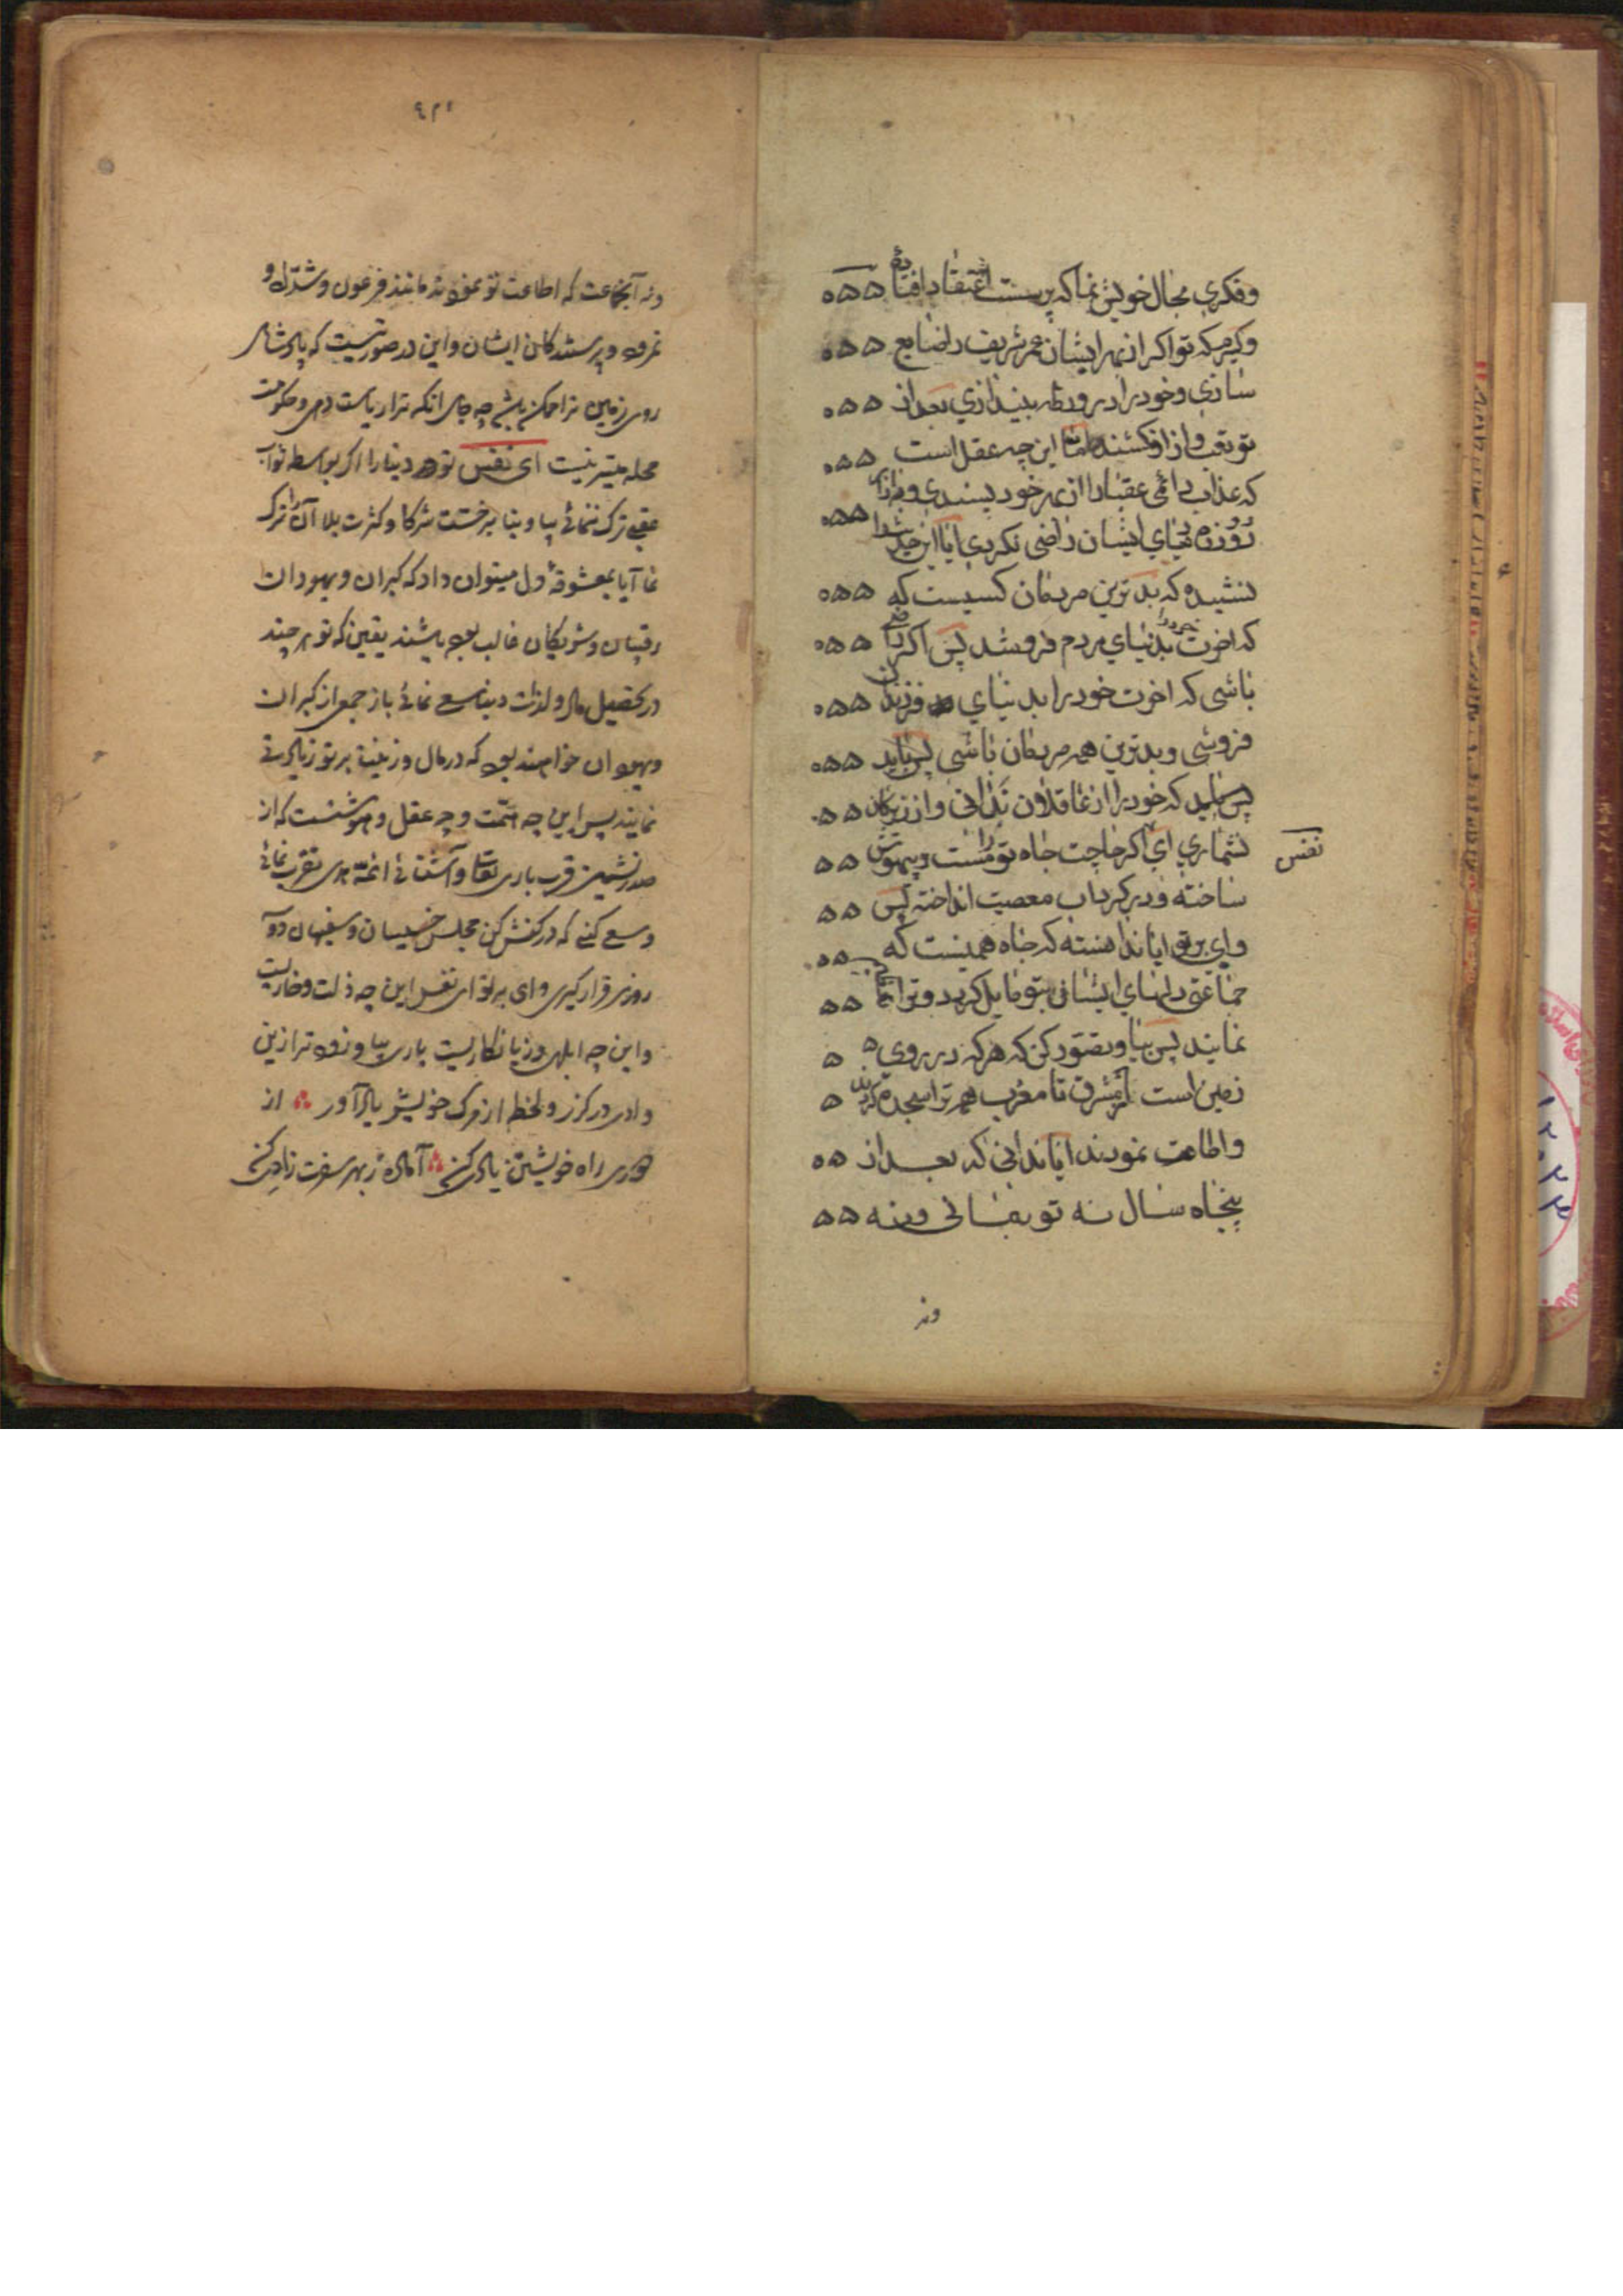 وفکری بحال خویش نما که پرست اعتقاد افتاده
وکیرم که تو اکر از بهر ایشان عمر شریف را ضایع
سازی وخود را در ورطه بیندازی بعد از
تو بقب واز افکنند اما این چه عقل است
که عذاب دائمی عقبا را از بهر خود پسندی وبه ازای
روزه دنیای ایشان راضی نکردی ایا این حدیث را
نشنیده که بدترین مردمان کسیست که
که اخرت خود را بدنیای مردم فروشد پس اکر راضی
باشی که اخرت خود را بدنیای فرزندان
فروشی وبدترین همه مردمان باشی پس باید
پس باید که خود را از عاقلان ندانی واز زیرکان
نشماری ای اکر حاجت جاه تو را مست وبیهوش
نفس
ساخته ودر کرداب معصیت انداخته پس
وای بر تو ایا ندانسته که جاه همینست که
جماعتی دلهای ایشان بتو مایل کردد وترا
نمایند پس بیا وتصور کن که هر که در روی
زمین است از مشرق تا مغرب همه ترا سجده کردند
واطاعت نمودند ایا ندانی که بعد از
پنجاه سال نه تو بمانی ونه
ونه
ونه آنجماعت که اطاعت تو نمودند مانند فرعون وشداد و
نمرود وپرستندکان ایشان واین در صورتیست که پادشاهی
روی زمین ترا ممکن باشد چه جای انکه ترا ریاست دهی وحکومت
محله میسر نیست ای نفس تو هر دینار را اکر بواسطه ثواب
عقبی ترک ننمائی بیا وبنا بر خست شرکا وکثرت بلا آنرا ترک
نما آیا بمعشوقه دل میتوان داد که کبران ویهودان
رقیبان وشریکان غالب بوده باشند یقین که تو هر چند
در تحصیل مال ولذات دینا سعی نمائی باز جمعی از کبران
ویهودان خواهند بود که در مال وزینت بر تو زیادتی
نمایند پس این چه همت وچه عقل وهوشست که از
صدر نشین قرب باری تعالی وآشنائی ائمه هدی تقرب نمائی
وسعی کنی که در کفش کن مجلس خسیسان وسفیهان دو
روزی قرار کیری وای بر تو ای نفس این چه ذلت وخاریست
واین چه ابلهی وزیانکاریست باری بیا وزود تر ازین
وادی در کذر ولحظه از مرک خویش یاد آور از
دوری راه خویشتن یاد کنی آماده ز بهر سفرت زاد کنی